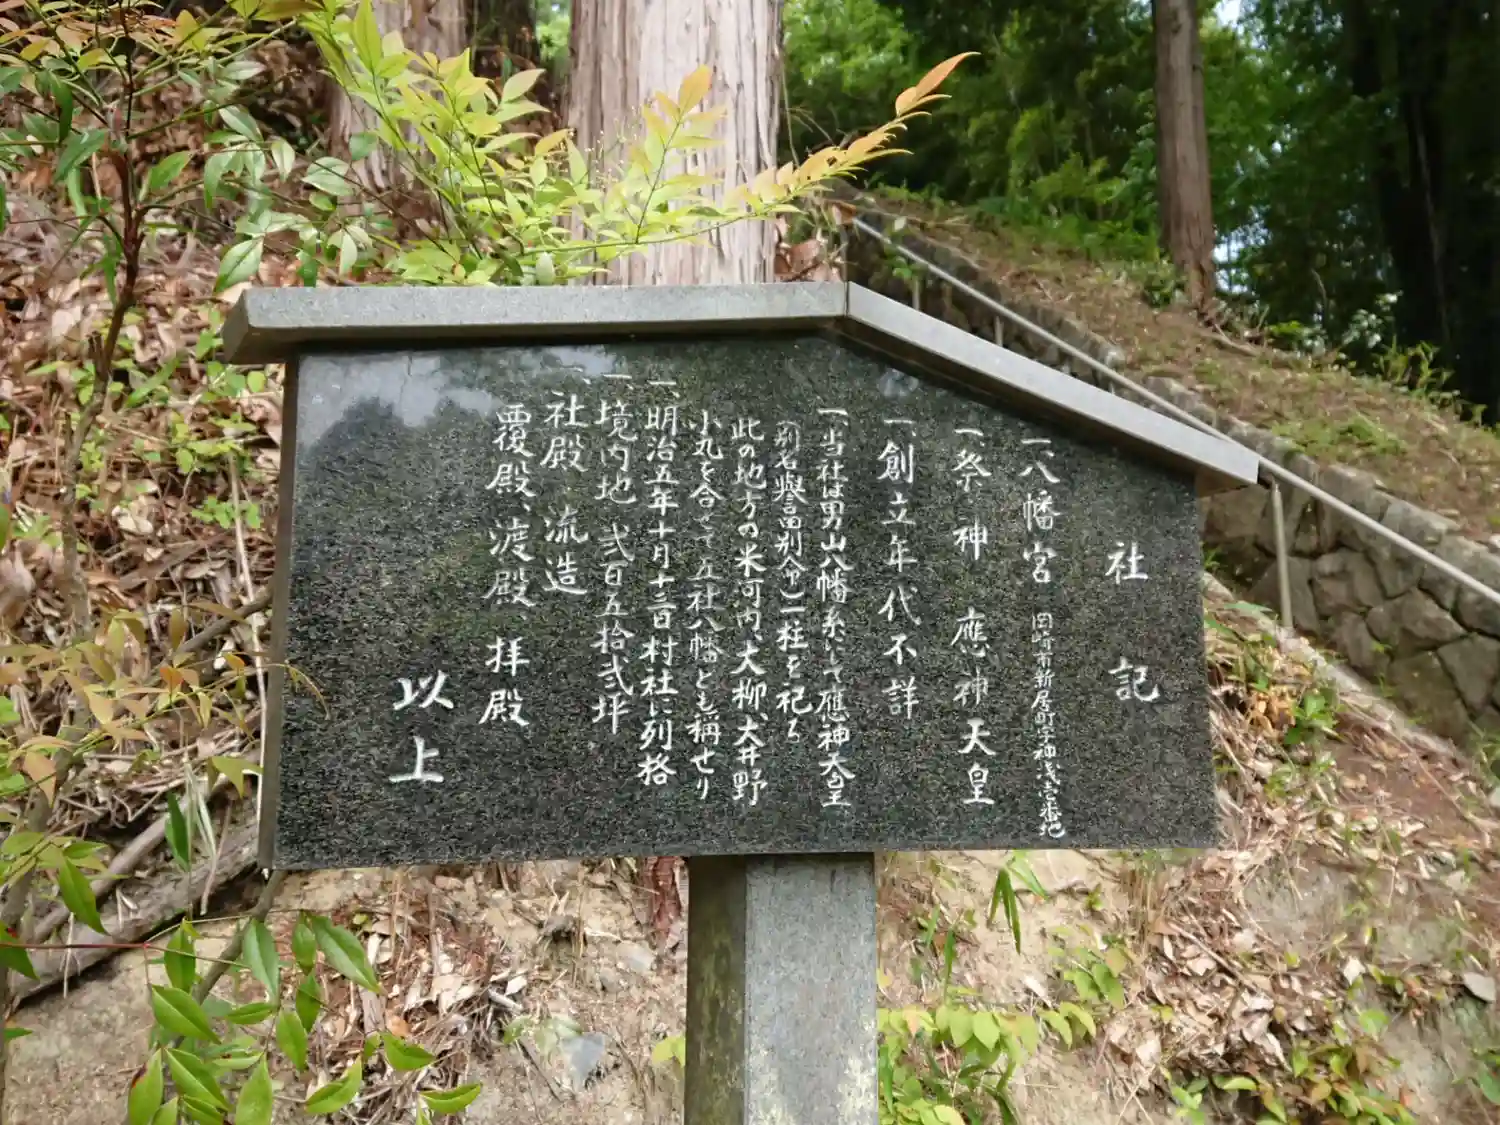 社記
一、八幡宮 岡崎市新居町字神浅壱番地
一、祭神 應神天皇
一、創立年代不詳
一、当社は男山八幡系にして應神天皇
（別名譽田別命）一柱を祀る
此の地方の米河内、大柳、大井野
小丸を合せて五社八幡とも称せり
一、明治五年十月十二日村社に列格
一、境内地 弐百五拾弐坪
一、社殿 流造
覆殿、渡殿、拝殿
以上